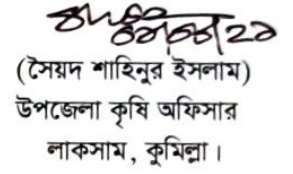 (সৈয়দ শাহিনুর ইসলাম)
উপজেলা কৃষি অফিসার
লাকসাম, কুমিল্লা।